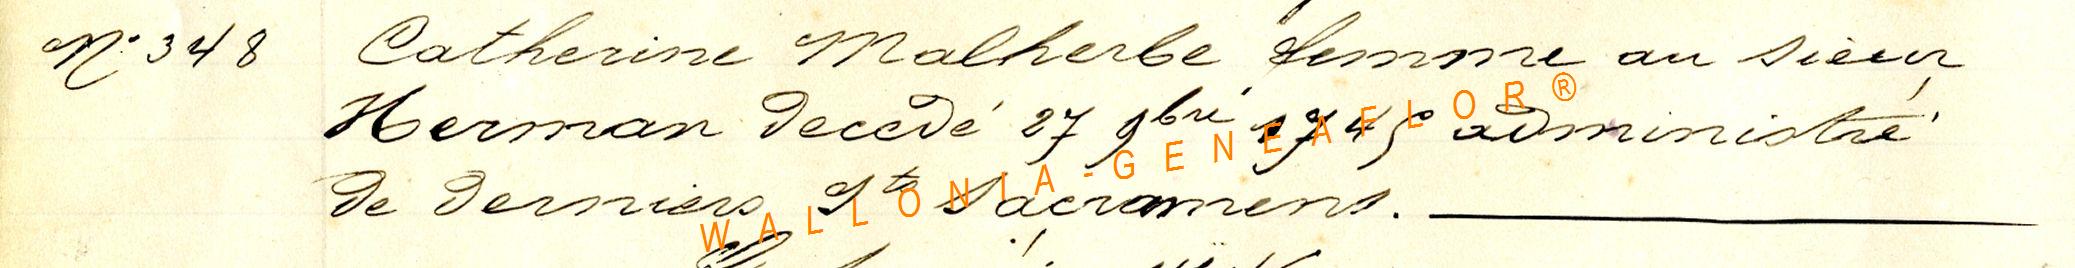 N° 348 Catherine Malherbe femme au sieur
Herman decedé 27 9bre 1745 administré
de derniers Sts Sacramens.
WALLONIA-GENEAFLOR®